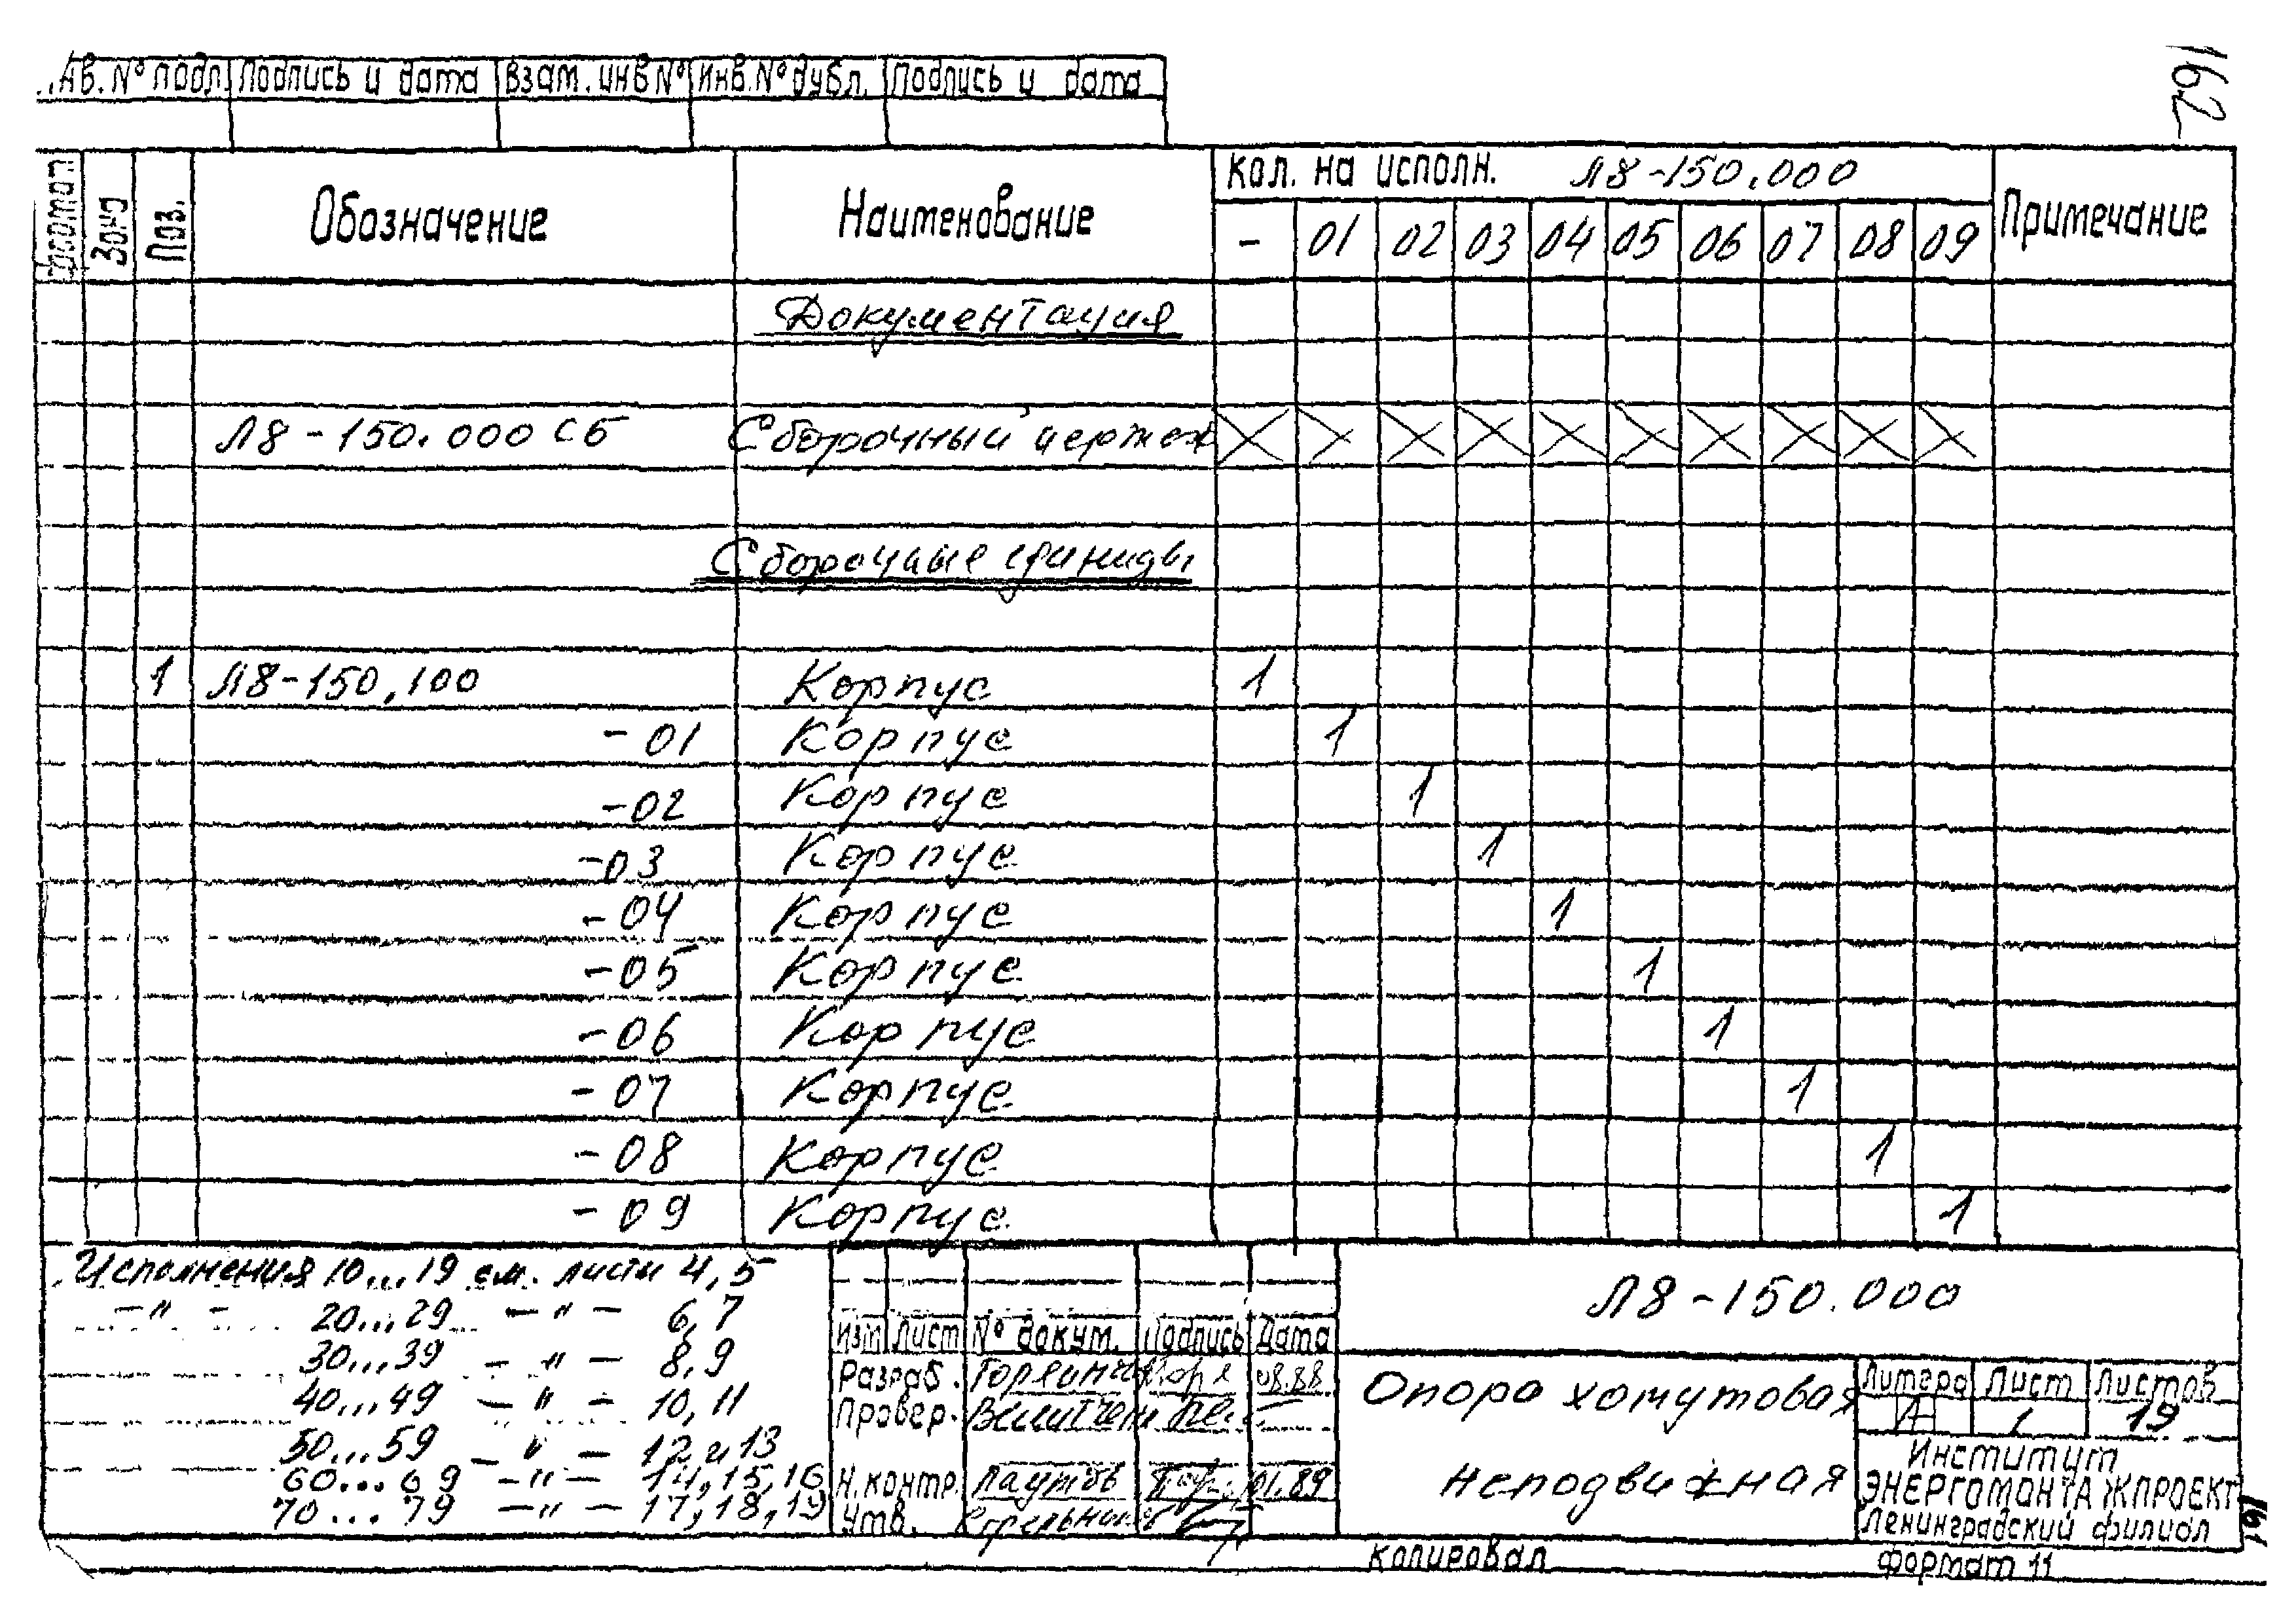 Инв. № подл. Подпись и дата Взам. инв № Инв. № дубл. Подпись и дата
162
Формат Зона Поз. Обозначение Наименование Кол. на исполн. Л8-150.000 Примечание
- 01 02 03 04 05 06 07 08 09
Документация
Л8-150.000 СБ Сборочный чертеж X X X X X X X X X X
Сборочные единицы
1 Л8-150.100 Корпус 1
-01 Корпус 1
-02 Корпус 1
-03 Корпус 1
-04 Корпус 1
-05 Корпус 1
-06 Корпус 1
-07 Корпус 1
-08 Корпус 1
-09 Корпус 1
Исполнения 10...19 см. листы 4,5
-"- 20...29 -"- 6,7
30...39 -"- 8,9
40...49 -"- 10,11
50...59 -"- 12 и 13
60...69 -"- 14,15,16
70...79 -"- 17,18,19
Изм Лист № докум. Подпись Дата
Разраб. 08.88
Провер.
Н.контр. 01.89
Утв.
Л8-150.000
Опора хомутовая
неподвижная
Литера Лист Листов
А 1 19
Институт
ЭНЕРГОМОНТАЖПРОЕКТ
Ленинградский филиал
161
Копировал Формат 11